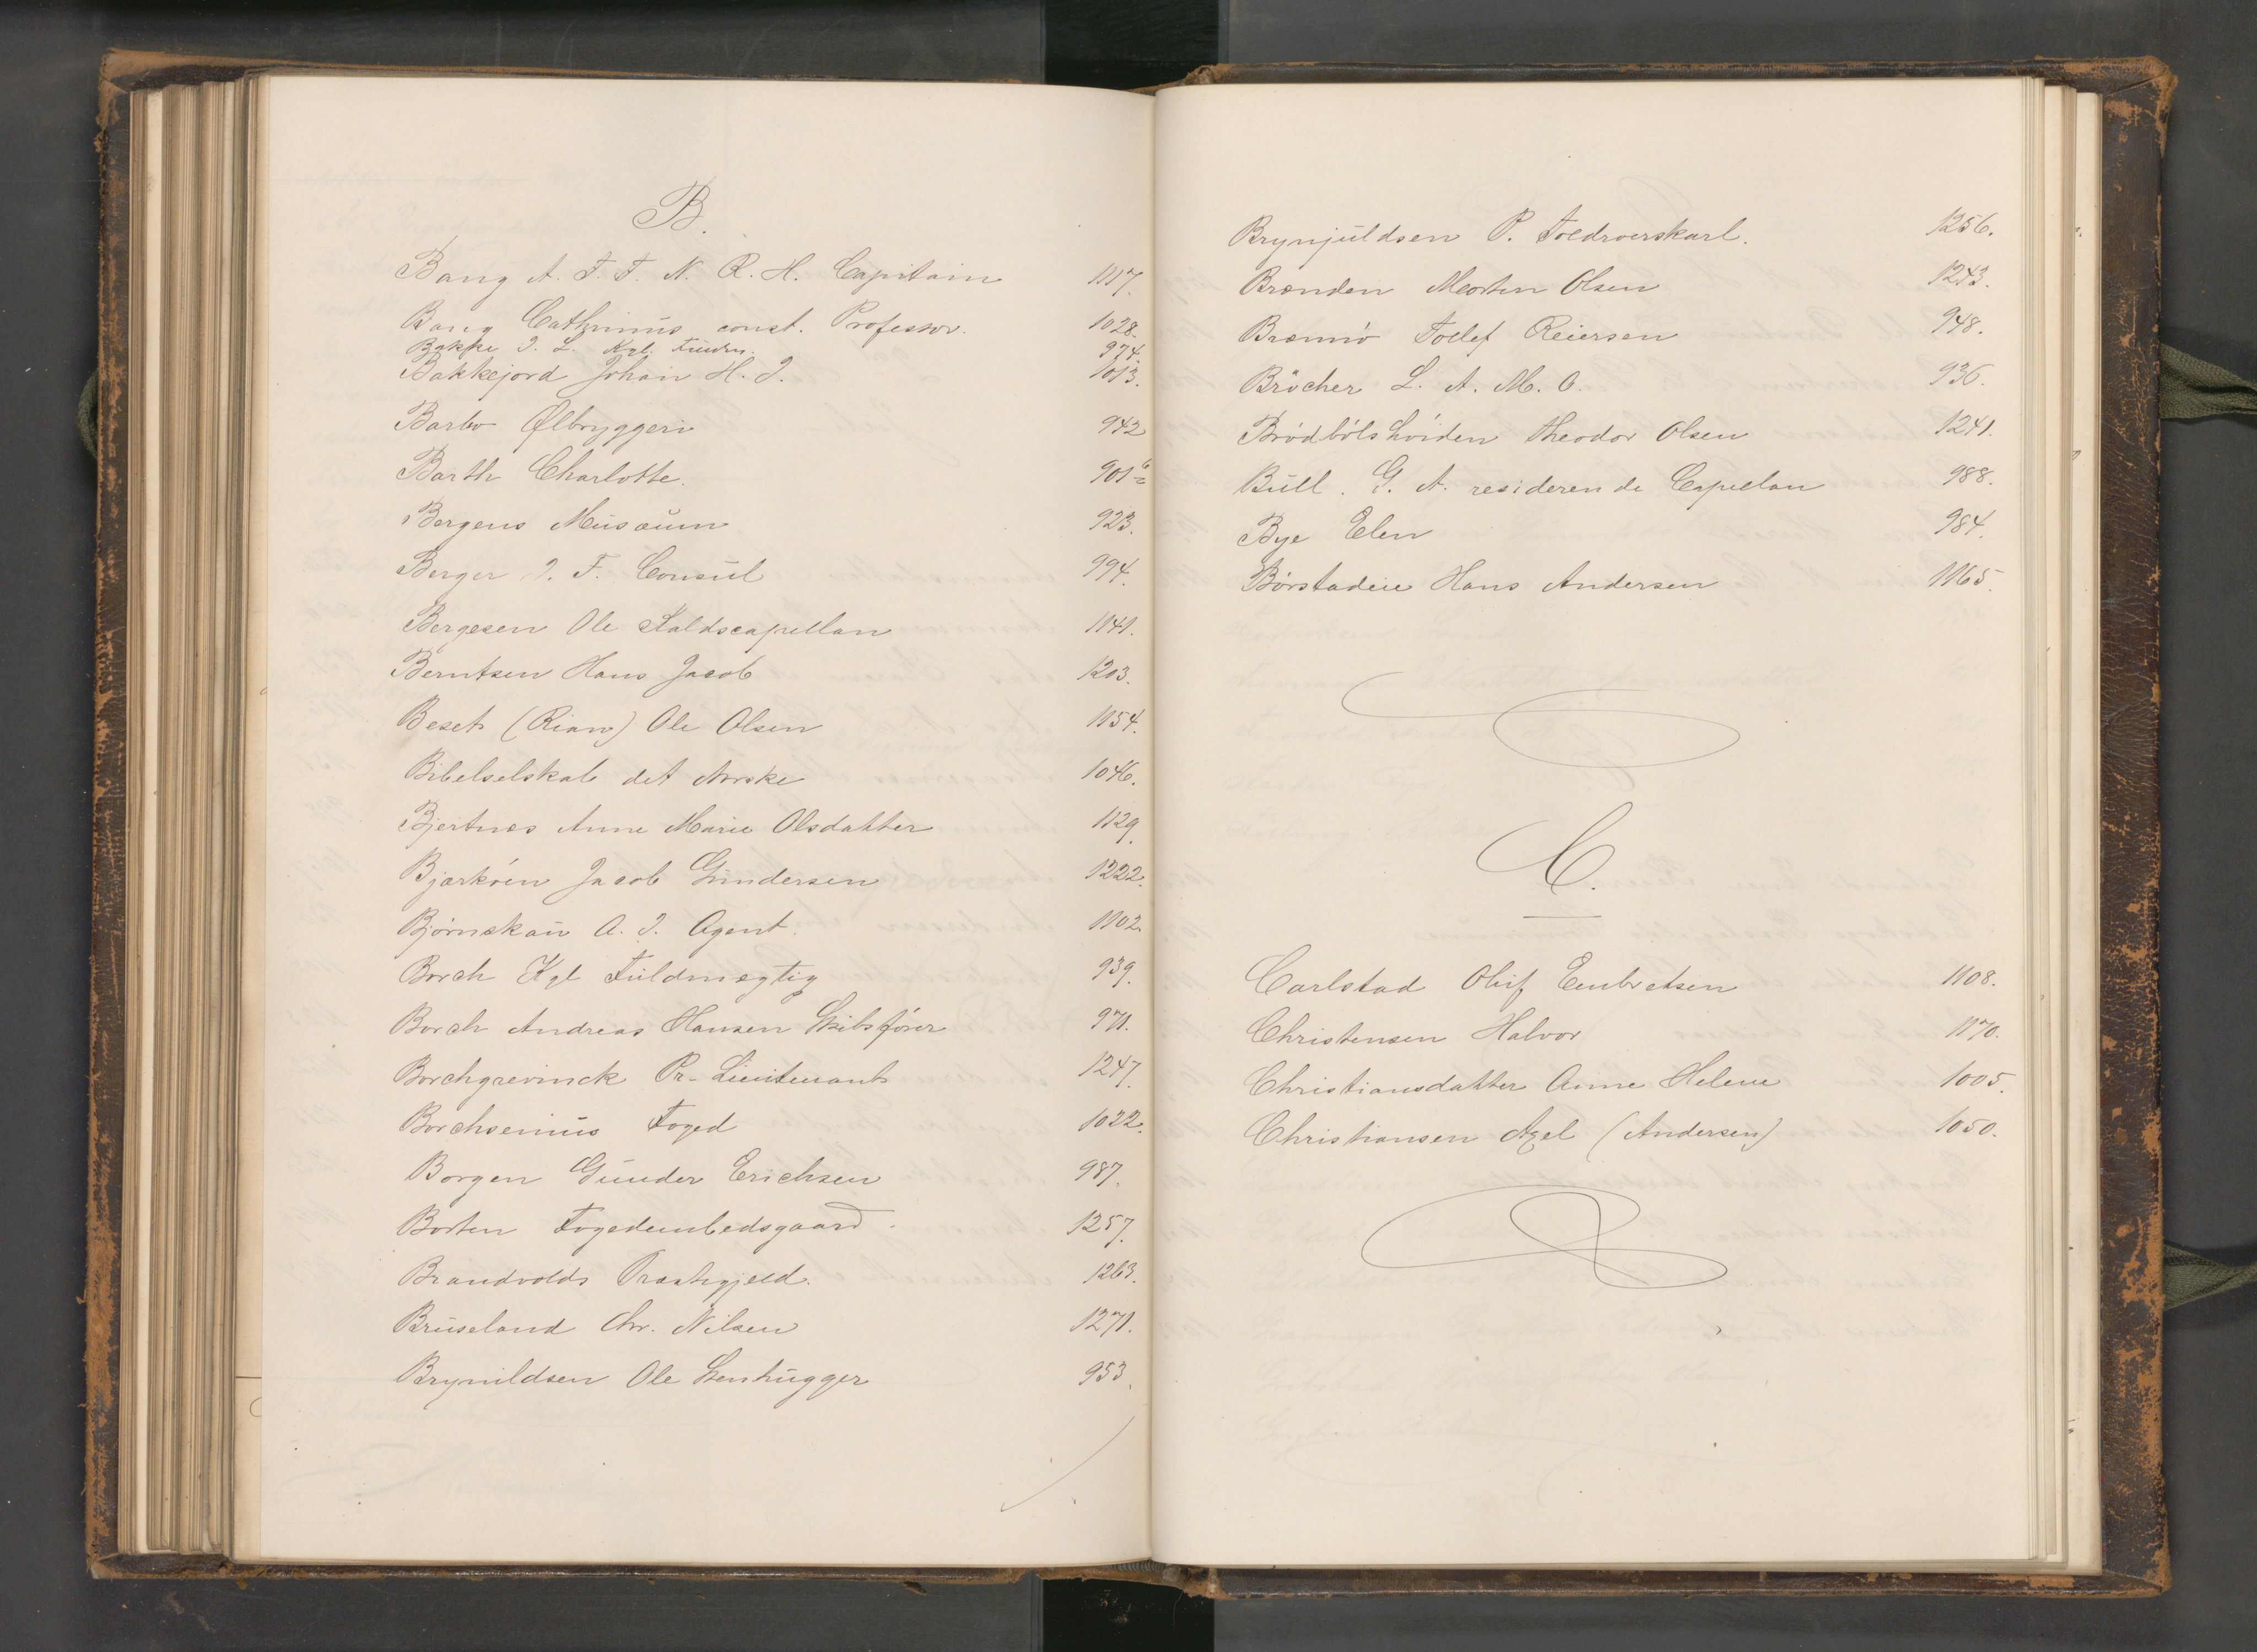 B.
Bang A. F. F. N. R. H. Capitain 1117.
Bang Cathrinus const. Professor. 1028.
Bakke J. L. Kgl. Fuldm. 974.
Bakkejord Johan H. J. 1013.
Barbo Ølbryggeri 942
Barth Charlotte. 901
Bergens Musæum 923.
Berger J. F. Consul 994.
Bergesen Ole Kaldscapellan 1141.
Berntsen Hans Jacob 1203.
Beset (Rian) Ole Olsen 1154.
Bibelselskab det Norske 1046.
Bjertnæs Anne Marie Olsdatter 1129.
Bjærköen Jacob Gundersen 1222.
Bjørnskau A. J. Agent. 1102.
Borch Kgl Fuldmægtig 939.
Borch Andreas Hansen Skibsfører 971.
Borchgrevinck Pr-Lieutenant 1247.
Borchsenius Foged 1022.
Borgen Gunder Erichsen 987.
Borten Fogedembedsgaard. 1257.
Brandvolds Præstegjeld. 1263.
Bruseland Chr. Nilsen 1271.
Brynildsen Ole Stenhugger 953.
Brynjuldsen P. Toldroerskarl. 1256.
Brænden Morten Olsen 1243.
Bræmö Tollef Reiersen 948.
Bröcher L. A. M. C. 936.
Brödbölshöiden Theodor Olsen 1241.
Bull. G. A. residerende Capellan 988.
Bye Elen 984.
Börstadeie Hans Andersen 1165.
C.
Carlstad Oluf Embretsen 1108.
Christensen Halvor 1170.
Christiansdatter Anne Helene 1005.
Christiansen Axel (Andersen) 1050.